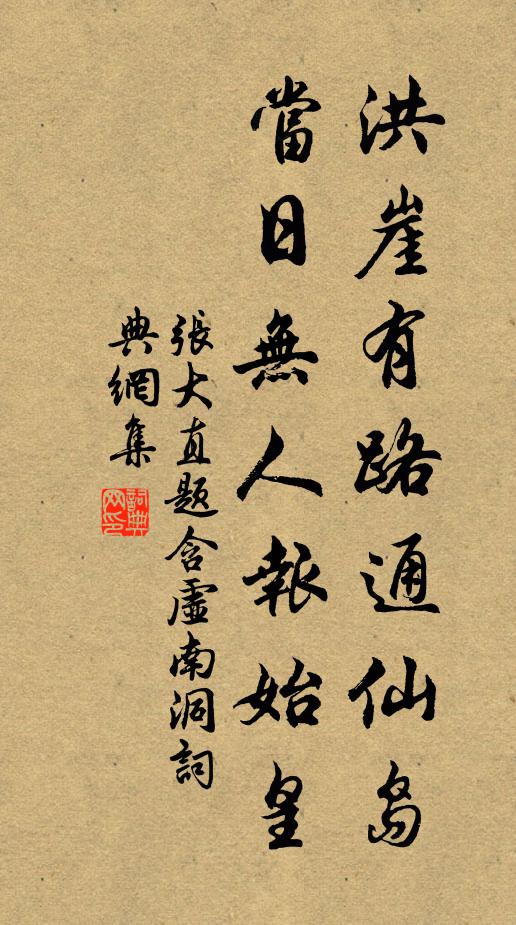 洪崖有路通仙島
當日無人報始皇
張大直題含虛南洞詞
典網集
詞典网印